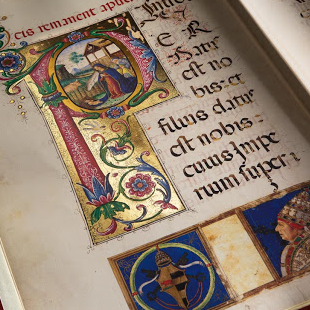 cis remanent apud
P
Natus
est no
bis: et
filius datus
est nobis:
cuius Impe
rium super